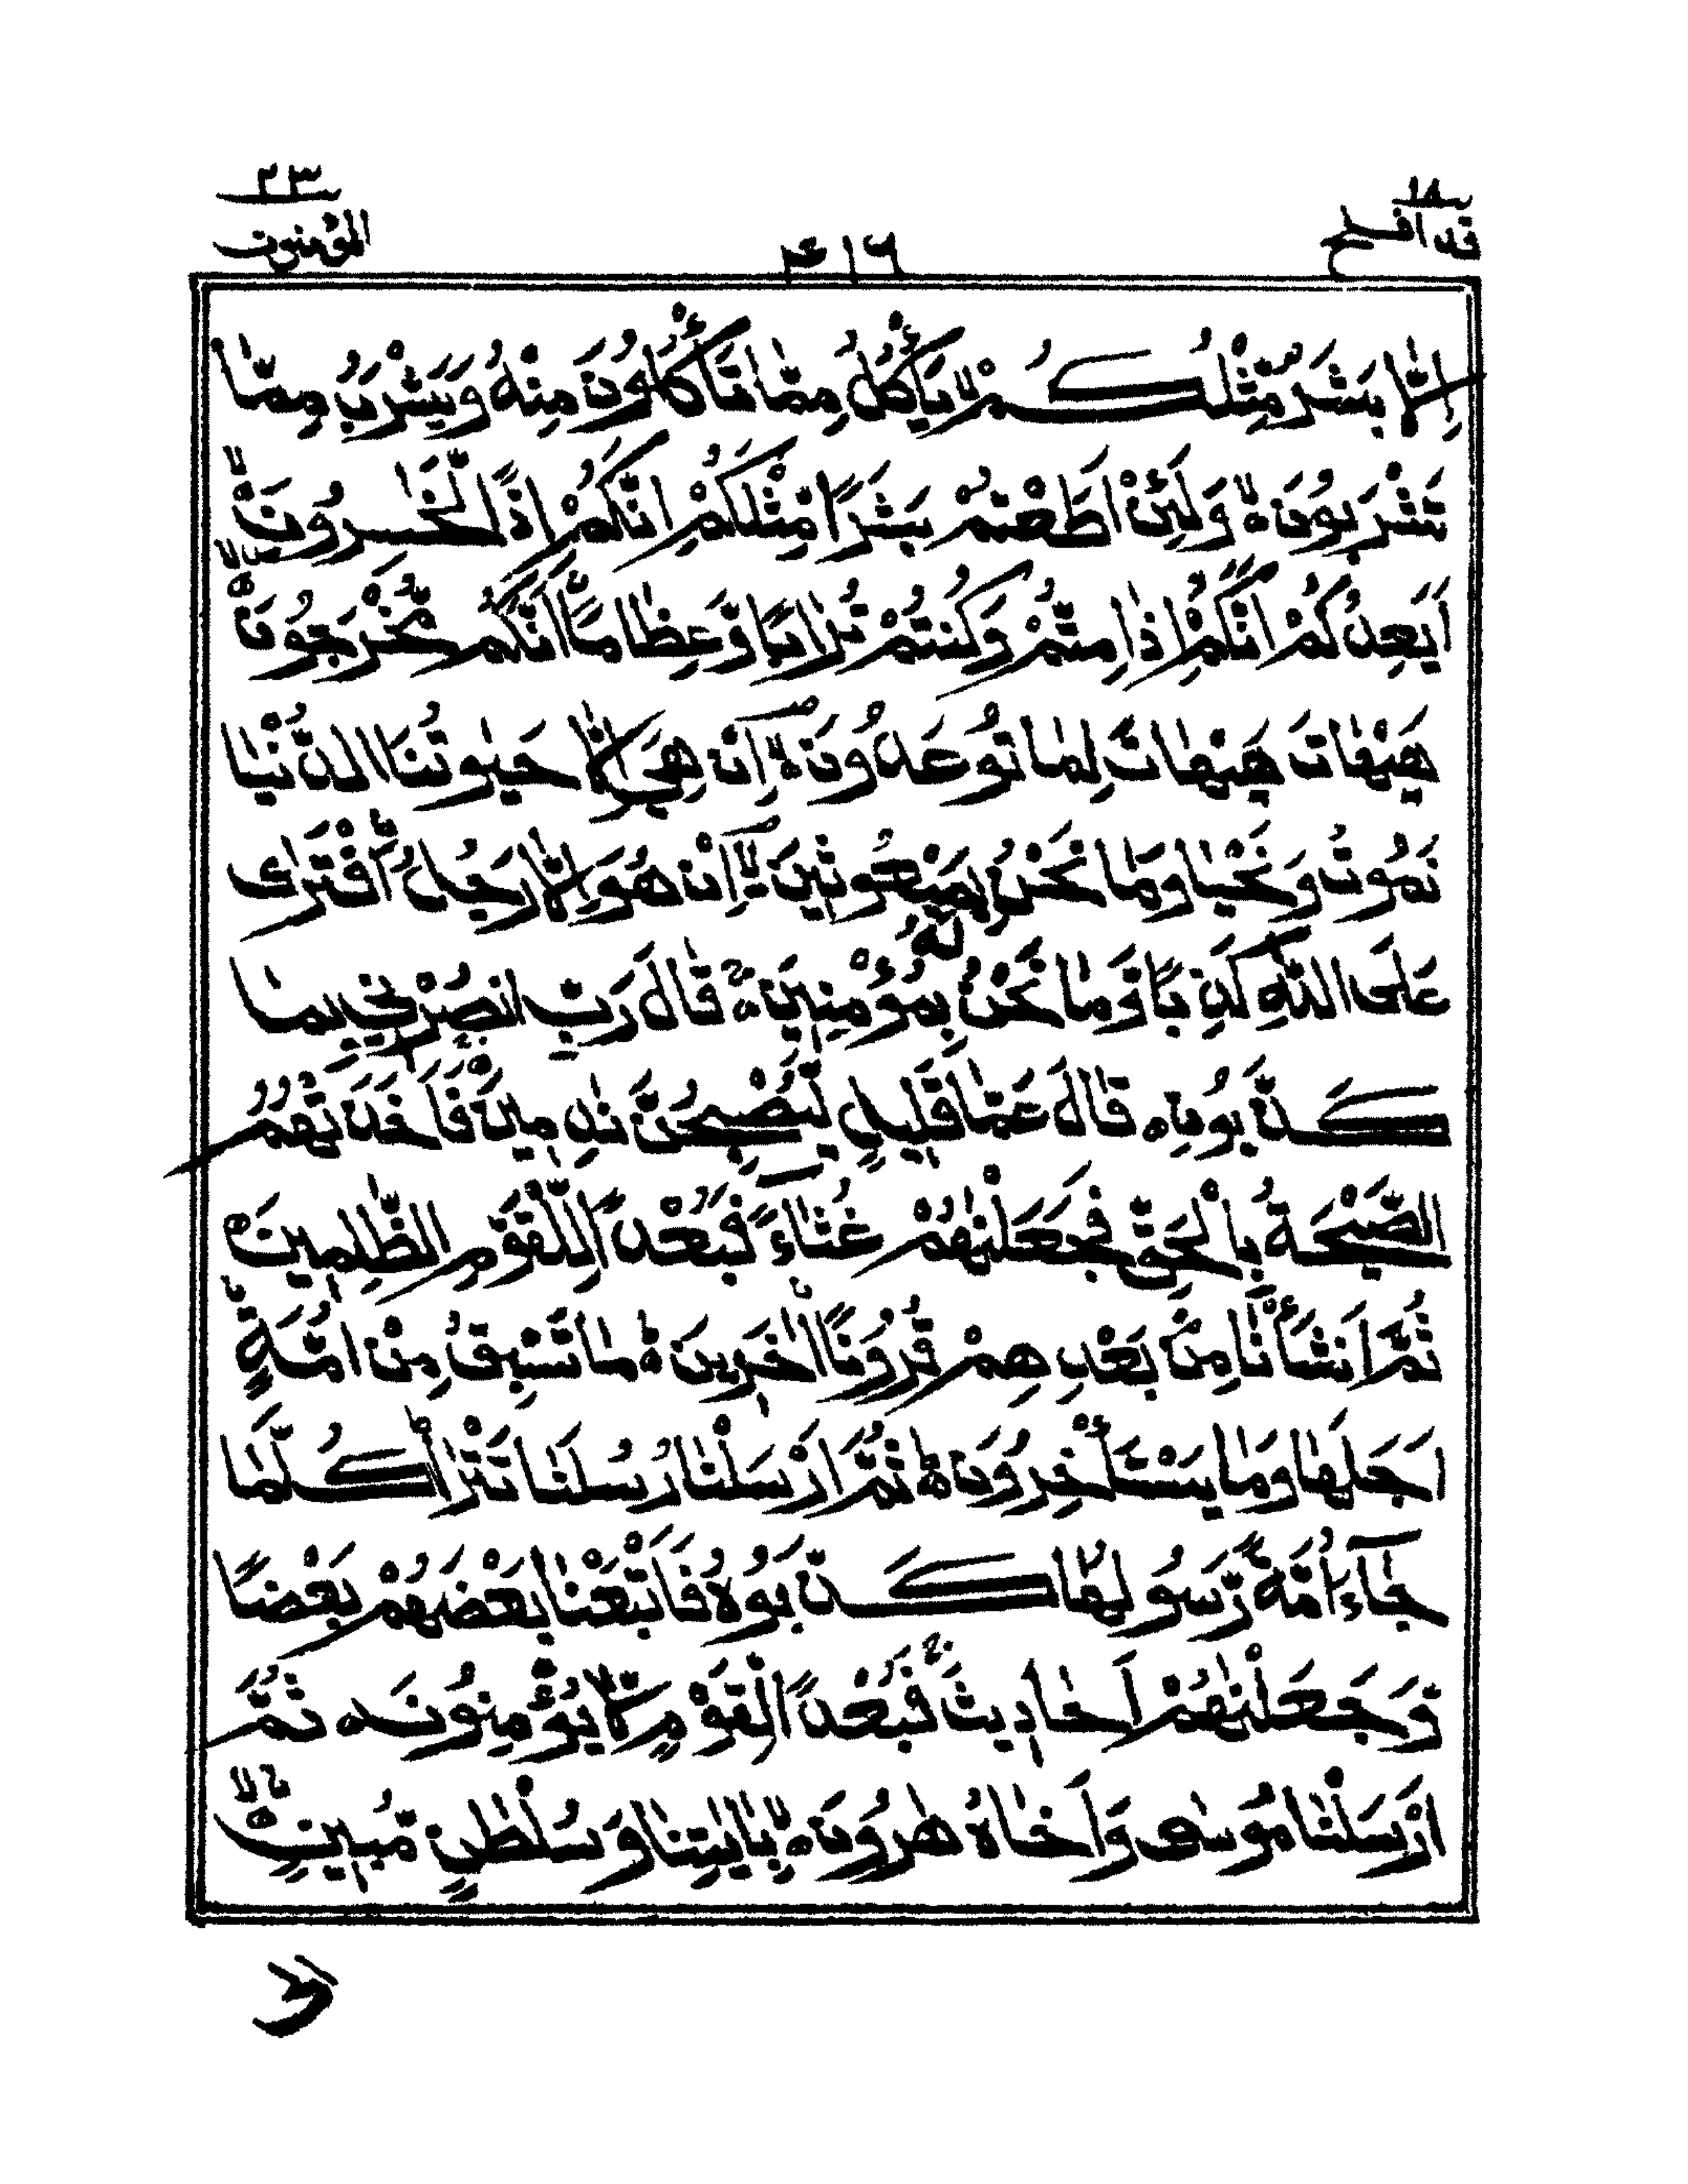 ١٨
قد افلح
٤١٦
٢٣
المؤمنون
اِلَّا بَشَرٌ مِّثْلُكُمْ ۙ يَأْكُلُ مِمَّا تَأْكُلُوْنَ مِنْهُ وَيَشْرَبُ مِمَّا
تَشْرَبُوْنَ ۙ وَلَئِنْ اَطَعْتُمْ بَشَرًا مِّثْلَكُمْ اِنَّكُمْ اِذًا لَّخٰسِرُوْنَ ۙ
اَيَعِدُكُمْ اَنَّكُمْ اِذَا مِتُّمْ وَكُنْتُمْ تُرَابًا وَّعِظَامًا اَنَّكُمْ مُّخْرَجُوْنَ ۙ
هَيْهَاتَ هَيْهَاتَ لِمَا تُوْعَدُوْنَ ۙ اِنْ هِيَ اِلَّا حَيَاتُنَا الدُّنْيَا
نَمُوْتُ وَنَحْيَا وَمَا نَحْنُ بِمَبْعُوْثِيْنَ ۙ اِنْ هُوَ اِلَّا رَجُلُ ۨافْتَرٰى
عَلَى اللّٰهِ كَذِبًا وَّمَا نَحْنُ لَهٗ بِمُؤْمِنِيْنَ ۞ قَالَ رَبِّ انْصُرْنِيْ بِمَا
كَذَّبُوْنِ ۞ قَالَ عَمَّا قَلِيْلٍ لَّيُصْبِحُنَّ نٰدِمِيْنَ ۚ فَاَخَذَتْهُمُ
الصَّيْحَةُ بِالْحَقِّ فَجَعَلْنٰهُمْ غُثَاءً ۚ فَبُعْدًا لِّلْقَوْمِ الظّٰلِمِيْنَ
ثُمَّ اَنْشَأْنَا مِنْ بَعْدِهِمْ قُرُوْنًا اٰخَرِيْنَ ۗ مَا تَسْبِقُ مِنْ اُمَّةٍ
اَجَلَهَا وَمَا يَسْتَأْخِرُوْنَ ۗ ثُمَّ اَرْسَلْنَا رُسُلَنَا تَتْرَا ۗ كُلَّمَا
جَآءَ اُمَّةً رَّسُوْلُهَا كَذَّبُوْهُ فَاَتْبَعْنَا بَعْضَهُمْ بَعْضًا
وَّجَعَلْنٰهُمْ اَحَادِيْثَ ۚ فَبُعْدًا لِّقَوْمٍ لَّا يُؤْمِنُوْنَ ۞ ثُمَّ
اَرْسَلْنَا مُوْسٰى وَاَخَاهُ هٰرُوْنَ ۙ بِاٰيٰتِنَا وَسُلْطٰنٍ مُّبِيْنٍ ۙ